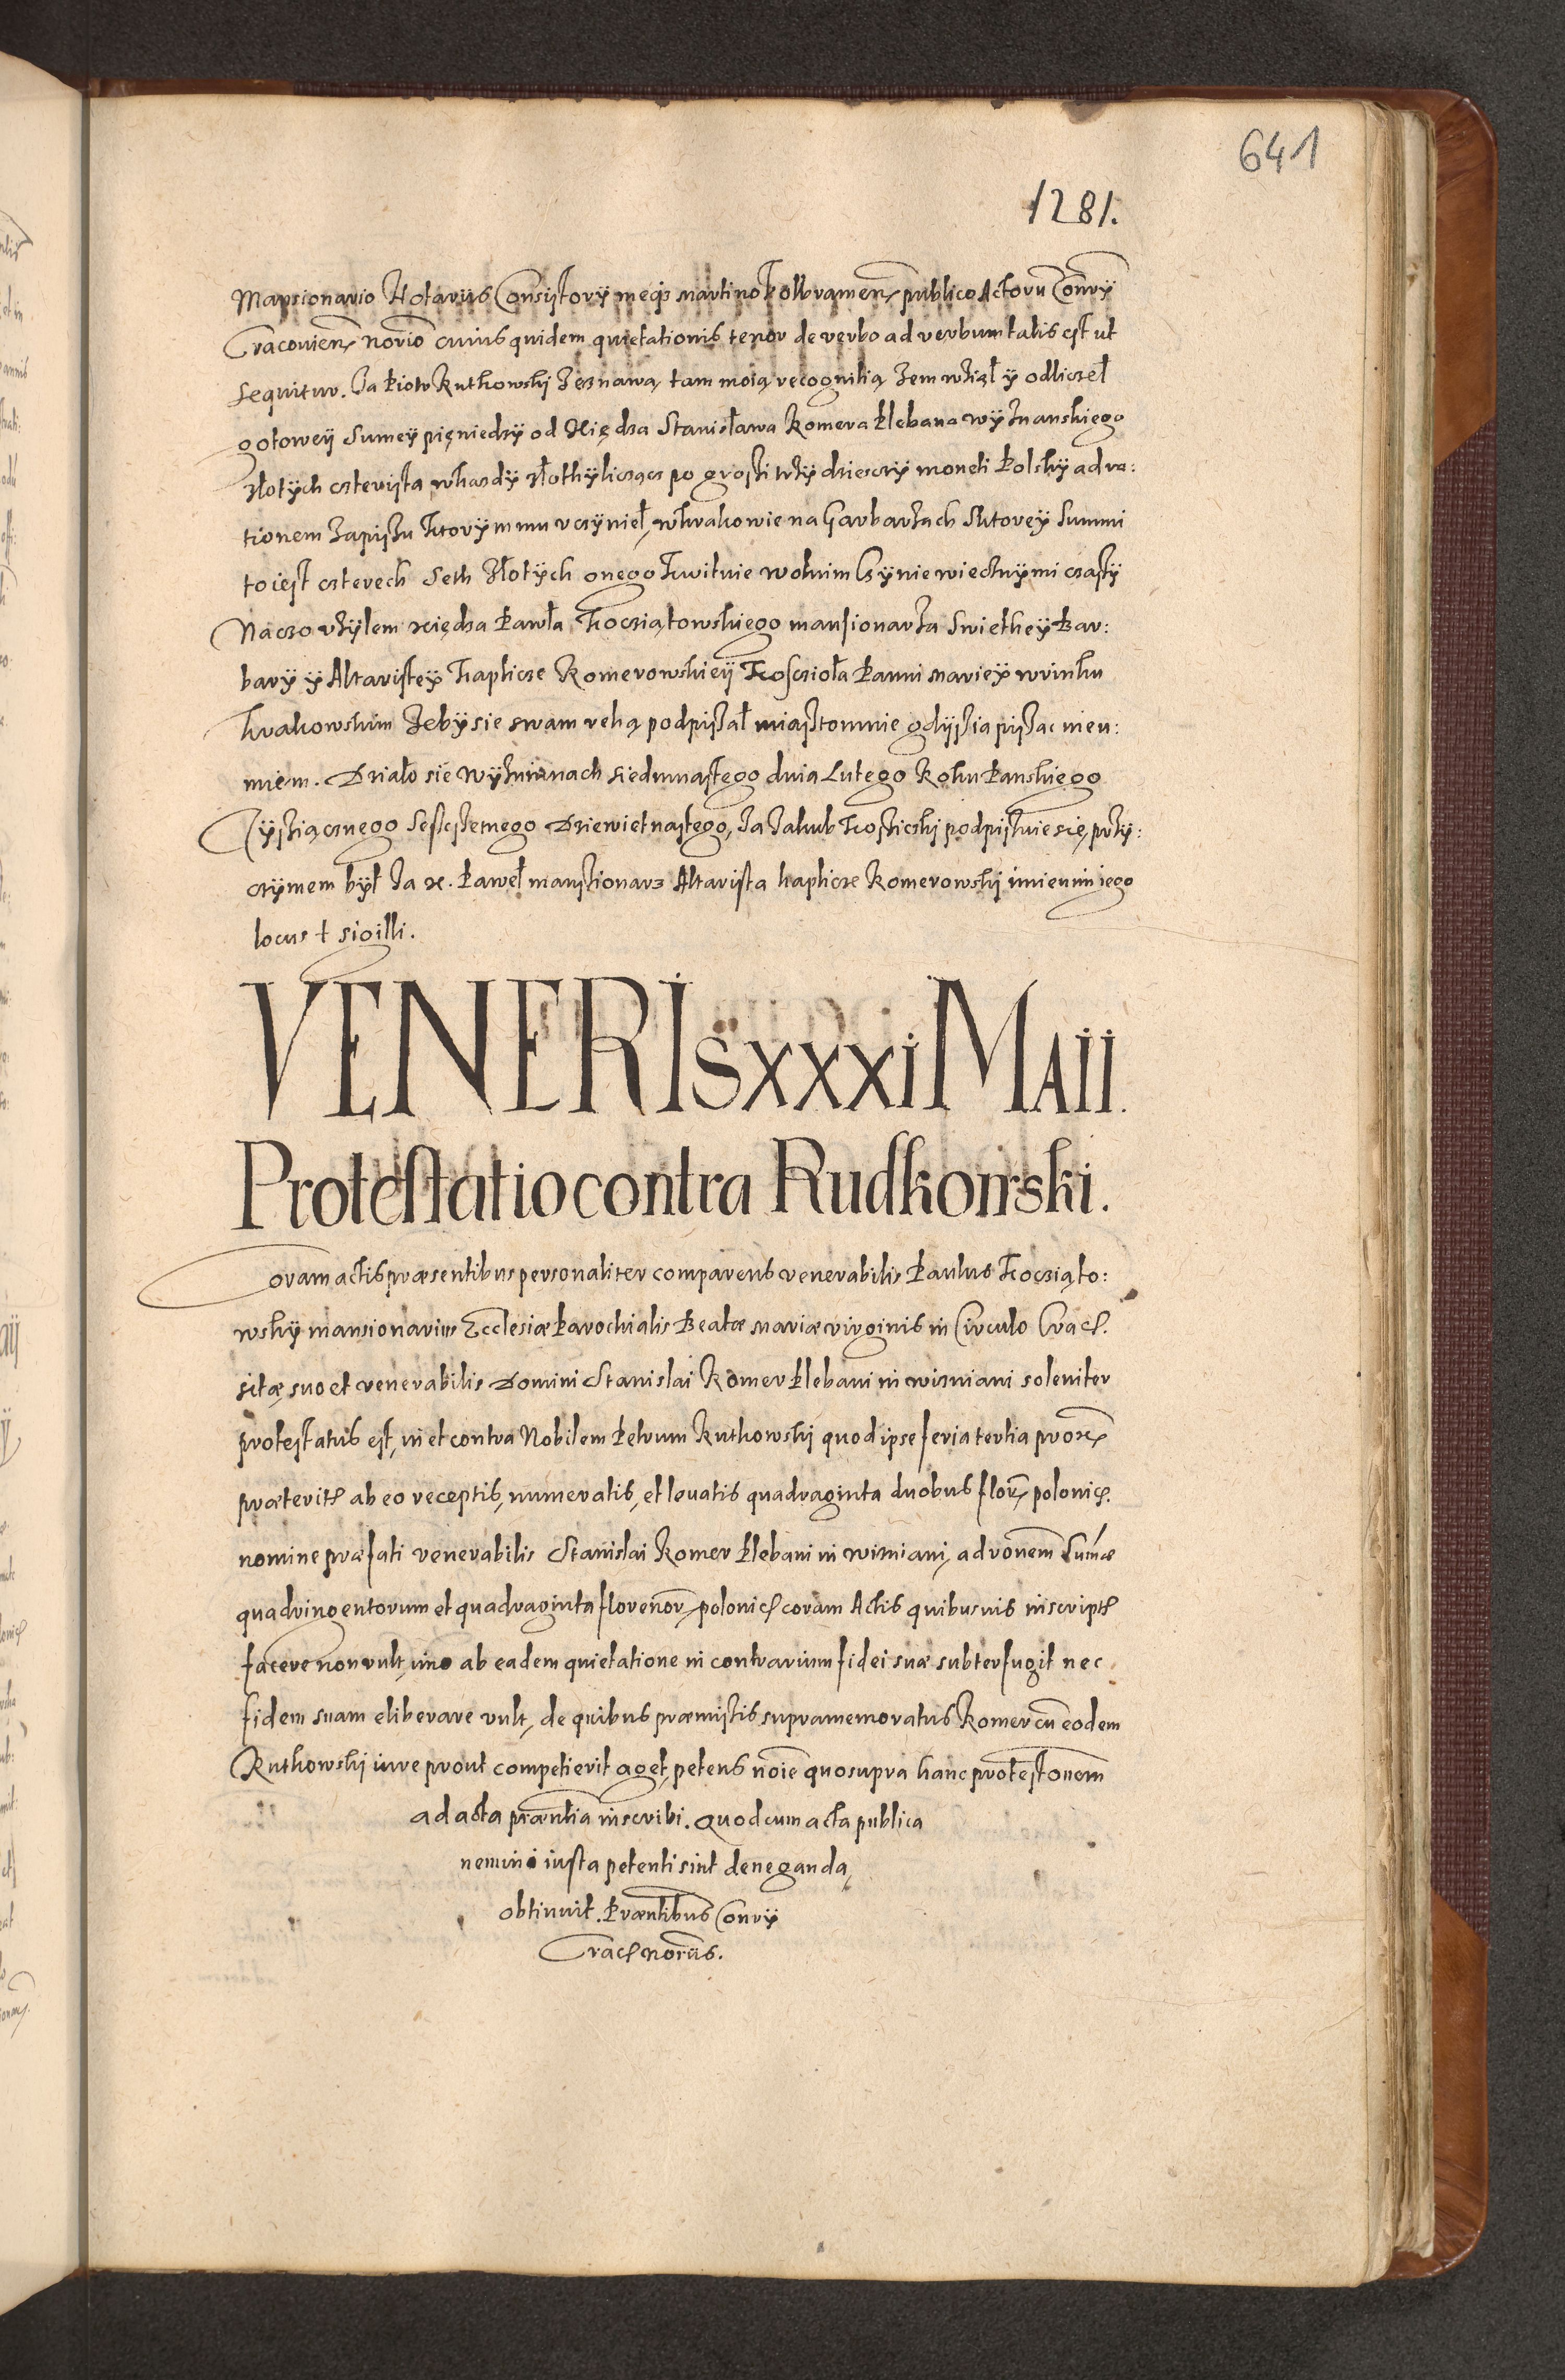 641
1281.
Mansionario Notariis Consistorÿ meqз Martino Wolbramen publico Actorũ Conrÿ
Cracovień norio cuius quidem quietationis tenor de verbo ad verbum talis est ut
sequitur. Ja Piotr Ruthowski Zeznawą tam moią recognitią zem wział ÿ odliczeł
gotoweÿ sumeÿ pięniedzÿ od Xiędza Stanisława Komera Plebana wÿznanskiego
złotÿch czterista whazdÿ złothÿ licząc po groszi trzÿdziesczÿ moneti Polskÿ ad ra:
tionem zapiszu ktorÿm mu vczÿnieł, w Krakowie na Garbarzach Sktoreÿ Summi
to iest czterech Seth złotÿch onego kwituie wolnim czÿnie wiecznÿmi czasÿ
Na czo vzÿlem xiędza Pawła Koczią towskiego mansionarza Swietheÿ Bar:
barÿ ÿ Altaristeÿ Kaplicze Komerowskieÿ Koscziola Panni Marieÿ w rinku
Krakowskim Zebÿ sie swam reką podpiszał miasto mnie gdÿszia piszac nieu:
miem. Działo sie wÿznianach siedmnastego dnia Lutego Roku Panskiego
Tÿsziącznego Sesczsetnego Dziewietnastego, Ja Jakub Kosziczki podpiszuie się, przÿ:
czÿmem był Ja x. Paweł manszionarz Altarista kaplicze Komerowski imieniem iego
locus + sigilli.
VENERIS XXXI MAII.
Protestatio contra Rudkowski.
Coram actis præsentibus personaliter comparens venerabilis Paulus Koczią to:
wskÿ mansionarius Ecclesiæ Parochialis Beatæ Mariæ virginis in Circulo Crac.
sitæ, suo et venerabilis Domini Stanislai Komer Plebani in wizniani soleniter
protestatus est, in et contra Nobilem Petrum Ruthowski quod ipse feria tertia prox
præterit ab eo receptis, numeratis, et levatis quadraginta duobus flor, polonic.
nomine præfati venerabilis Stanislai Komer Plebani in wizniani, ad ronem Sum̃æ
quadringentorum et quadraginta florenor, polonic coram Actis quibusuis inscript
facere non vult, imo ab eadem quietatione in contrarium fidei suæ subterfugit nec
fidem suam eliberare vult, de quibus præmissis supramemoratus Komer cũ eodem
Ruthowski iure prout competierit aget, petens noĩe quo supra hanc protestonem
ad acta præntia inscribi. Quod cum acta publica
nemini iusta petenti sint deneganda,
obtinuit. Præntibus Conrÿ
Crac noriis.